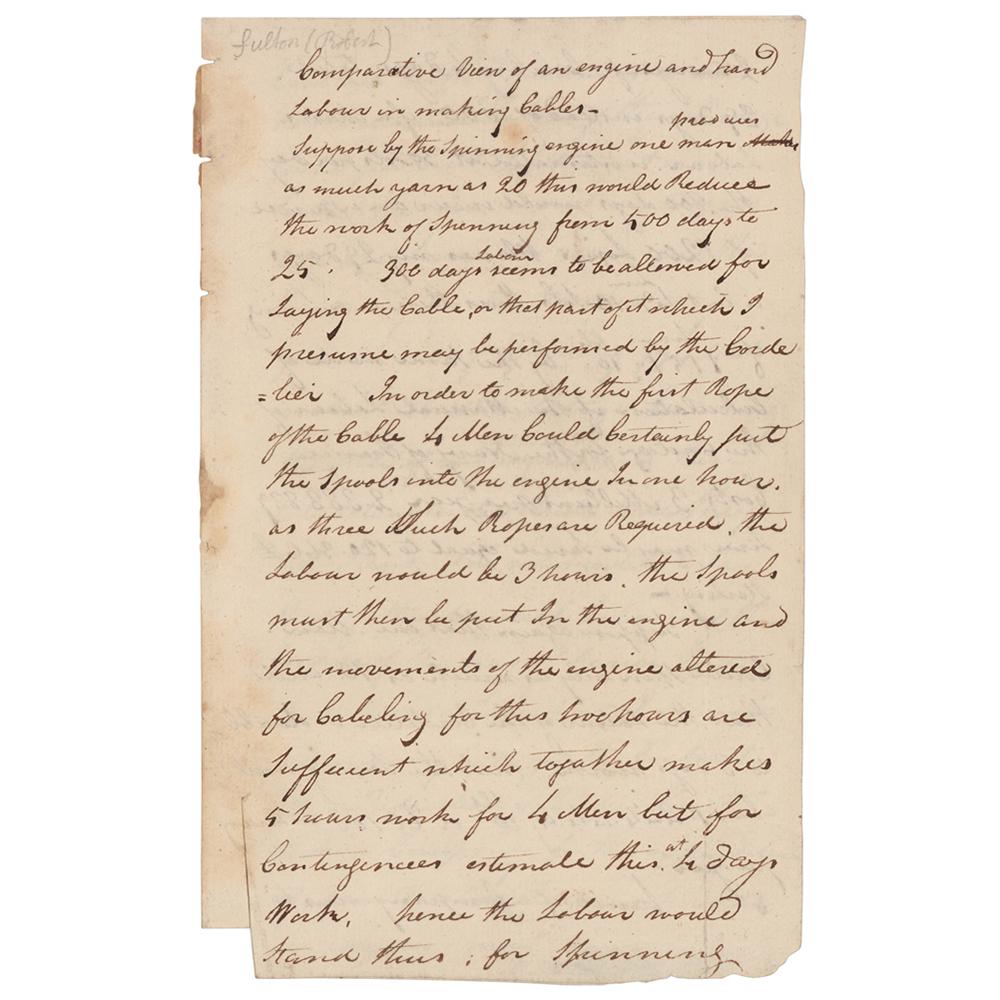 Fulton (Robert)
Comparative View of an engine and hand
Labour in making Cables -
produces
Suppose by the Spinning engine one man Makes
as much yarn as 20 this would Reduce
the work of Spenning from 500 days to
25. 300 days Labour seems to be allowed for
Laying the Cable, or that part of it which I
presume may be performed by the Corde
=lier In order to make the first Rope
of the Cable 4 Men Could Certainly put
the Spools into the engine In one hour.
as three Such Ropes are Required, the
Labour would be 3 hours. the Spools
must then be put In the engine and
the movements of the engine altered
for Cabeling for this two hours are
Sufficient which together makes
5 hours work for 4 Men but for
Contingencees estemate this at 4 days
Work, hence the Labour would
Stand thus; for Spinning